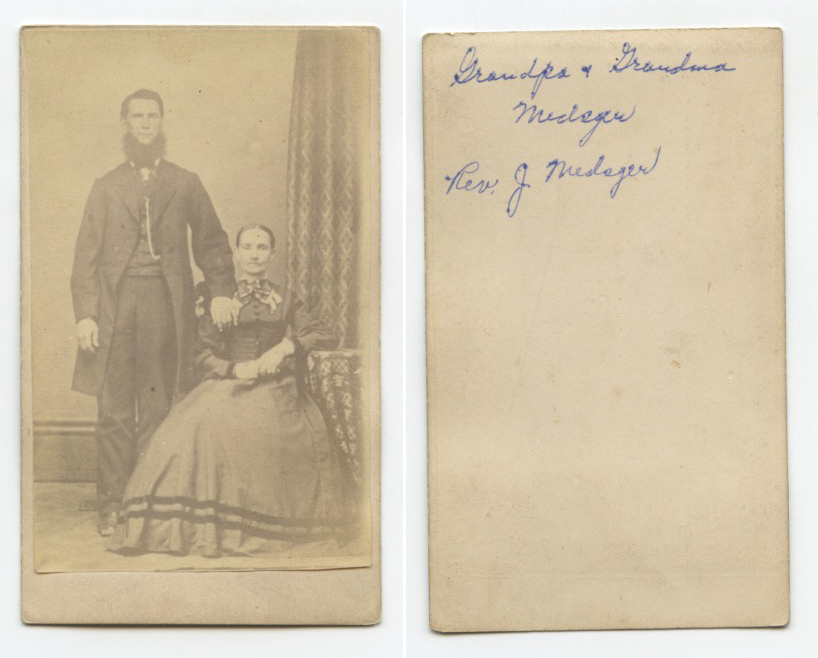 Grandpa & Grandma
Medsger
Rev. J. Medsger